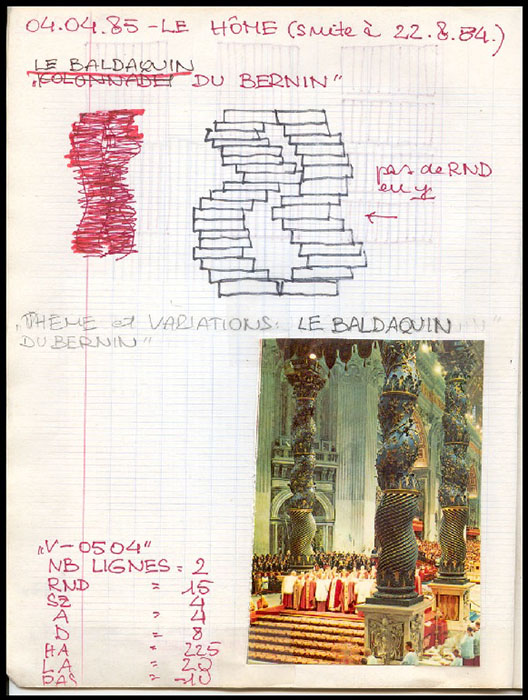 04.04.85 - LE HÔME (suite à 22.8.84.)
LE BALDAQUIN
„COLONNADE DU BERNIN"
pas de RND
en y
„THEME et VARIATIONS: LE BALDAQUIN
DU BERNIN"
„V-0504"
NB LIGNES = 2
RND = 15
SZ = 4
A = 4
D = 8
HA = 225
LA = 20
PAS = -10